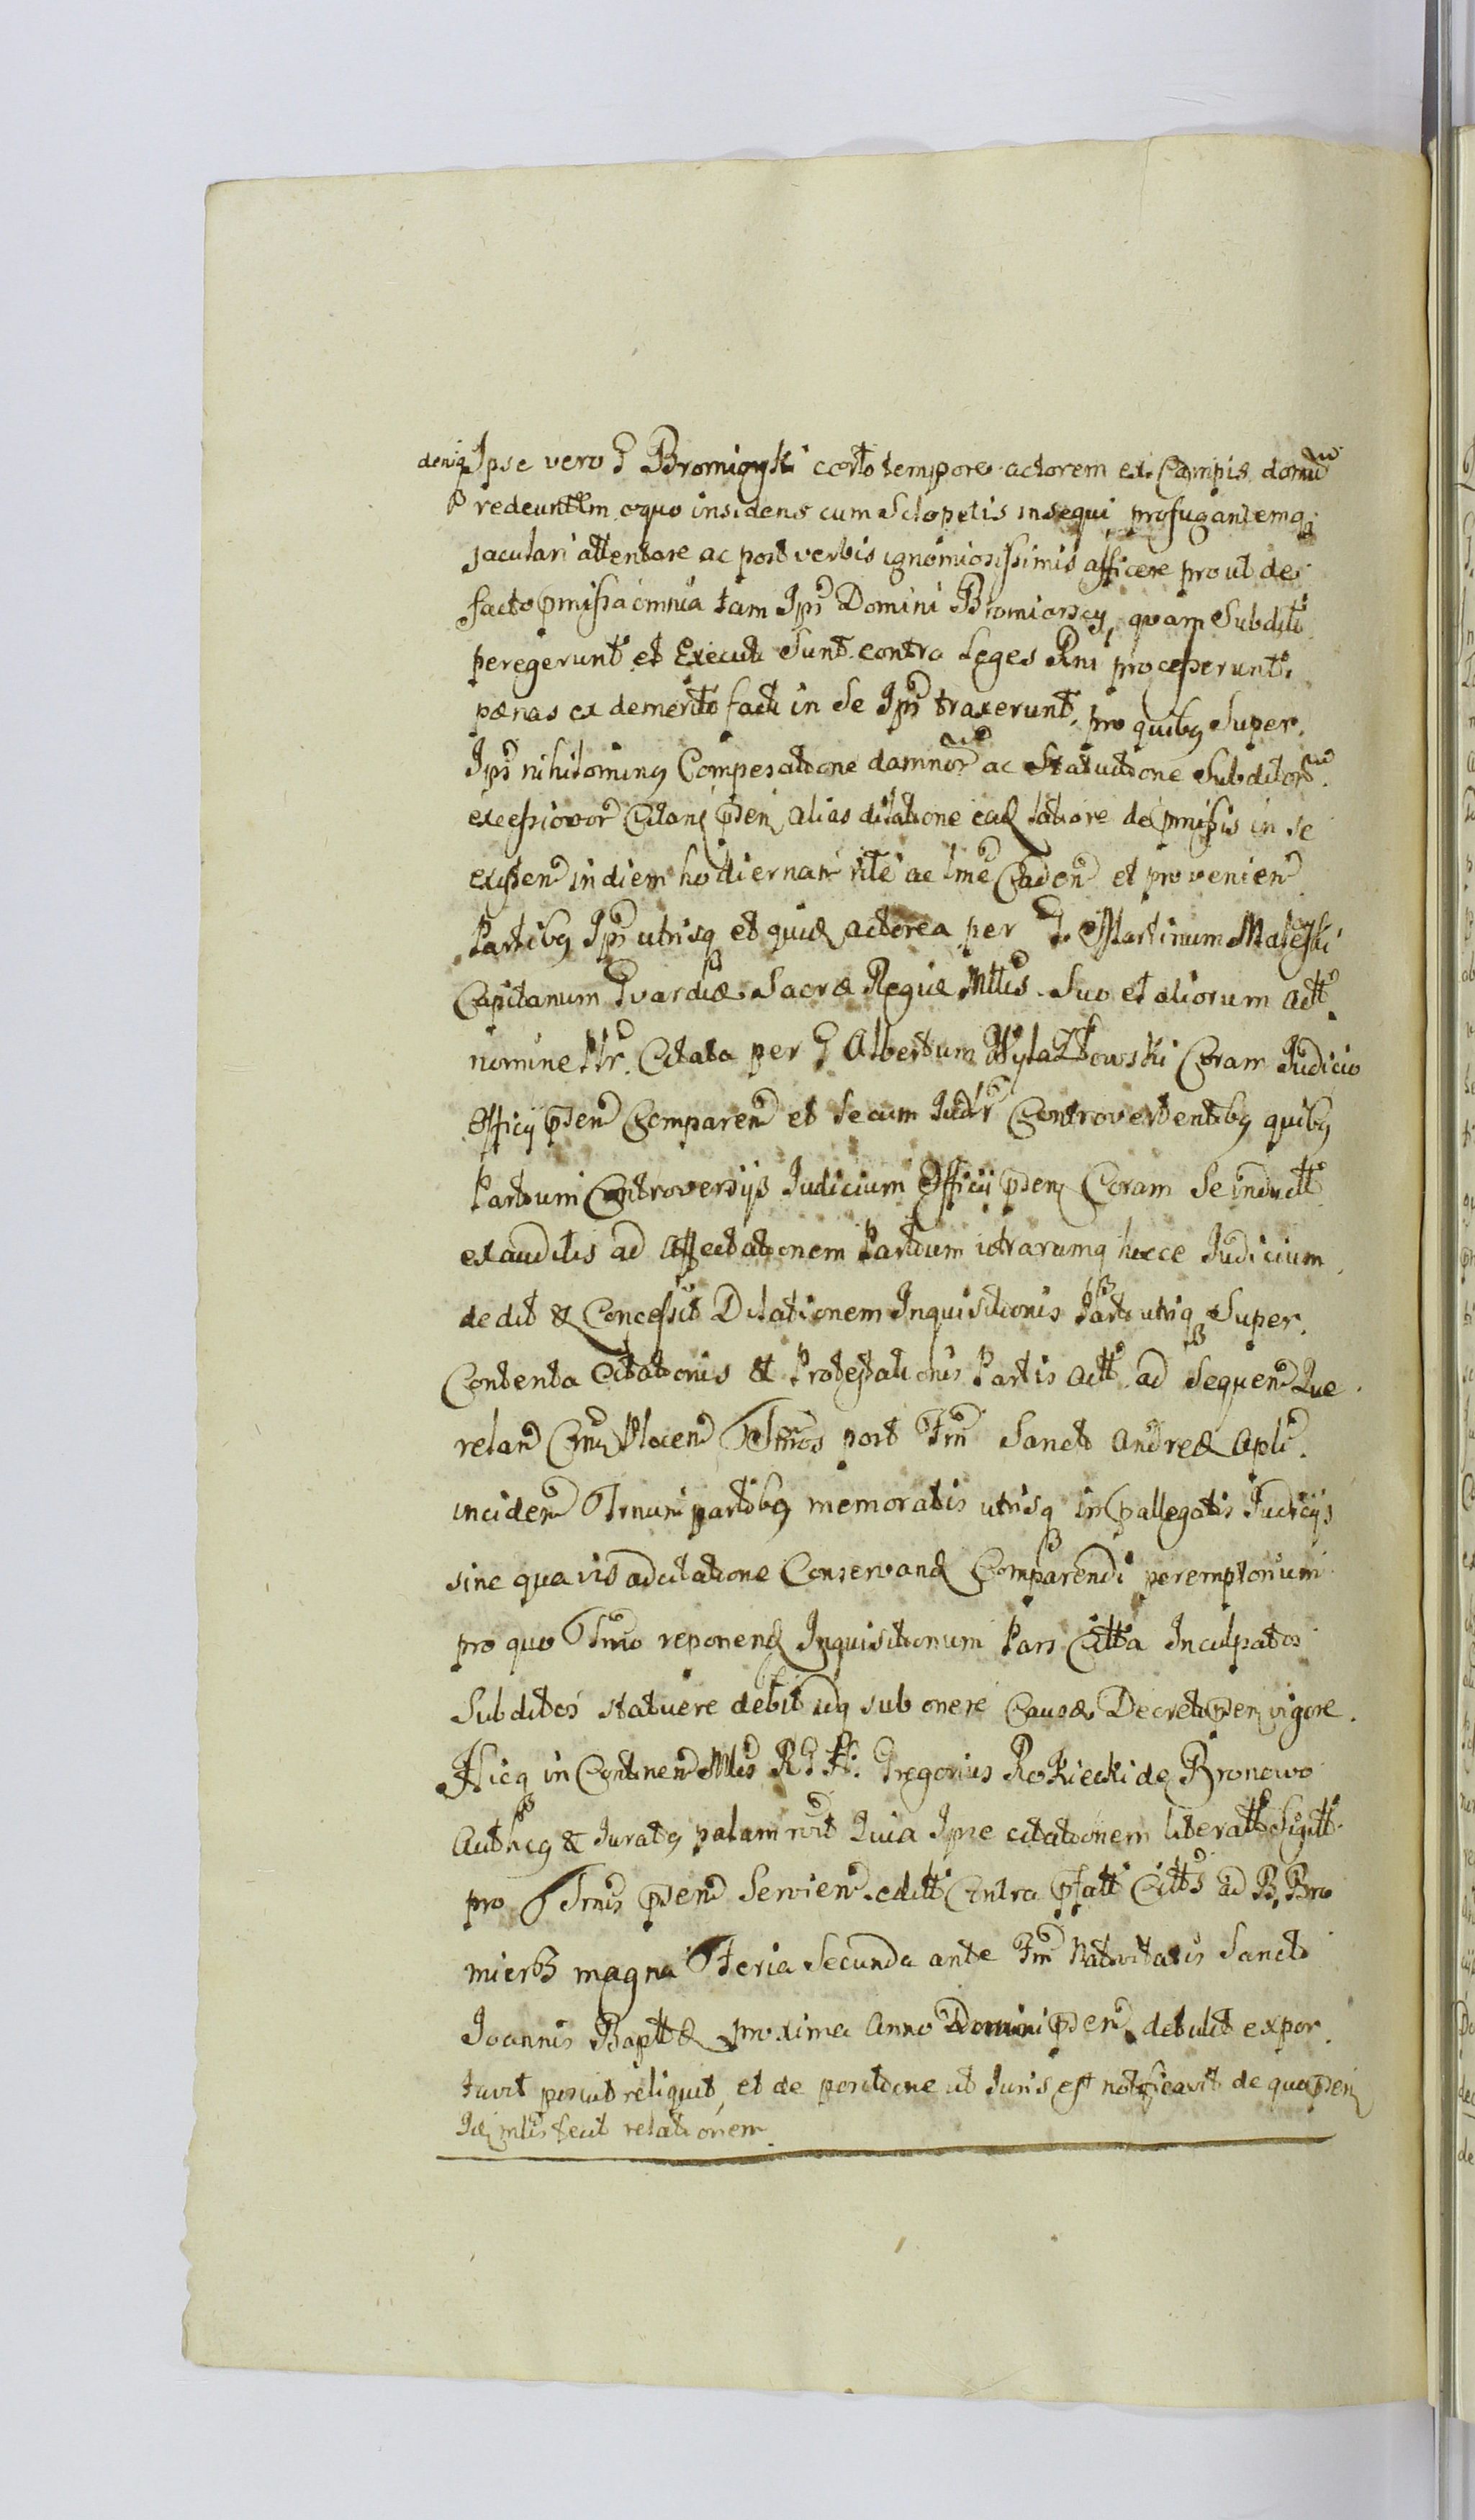 deniq Ipse vero G Bromirski certo tempore actorem ex Campis domu
redeuntem equo insidens cum Sclopetis insequi profugantemq
jaculari attentare ac post verbis ignomiosissimis afficere prout de
facto pmissa omnia tam Ipsi Domini Bromierscy, quam Subditi
peregerunt et Executi Sunt contra Leges Rni processerunt
pænas ex demerito facti in Se Ipsi traxerunt pro quibq Super
Ipsi nihilominq Compesatione damnor ac Statuitione Subditor
excessivor Citanq psen alias dilatione ead latiore de pmissis in se
existen in diem hodiernam rite ac lme Caden et provenien
Partibq Ipsi utrisq et quid actorea per G. Martinum Maleski
Capitanum Gvardiæ Sacræ Regiæ Mttis Suo et aliorum Actt
nomine Ctata per G Albertum Wylaztowski Coram Judicio
Officij psen Comparen et Secum Judr Controvertentibq quibq
Partium Controversijs Judicium Officij psen Coram Se inductt
exauditis ad Affectationem Partium utrarumq hocce Judicium
dedit & Concessit Dilationem Inquisitionis Parti utriq Super
Contenta Citationis & Protestationis Partis Actt ad Sequen Que
relan Cms Plocen Tmos post Fm Sancti Andreæ Apli
inciden Trnum partibq memoratis utrisq in pallegatis Judicijs
sine quavis adcitatione Conservand Comparendi peremptorium
pro quo Tmo reponend Inquisitionum Pars Citta Inculpatos
Subditos statuere debit idq sub onere Causæ Decreti psen vigore
Hicq in Continen Mtis R G H: Gregorius Rokiecki de Bronowo
Authcq & Juratq palam rvit Quia Ipse citationem literatt Sigitt
pro Trnis psen Servien editt Contra pfatt Citts ad B, Bro
mierß magna Feria Secunda ante Fm Nativitatis Sancti
Joannis Baptt æ proxima Anno Domini psen detulit expor
tavit posuit reliquit, et de positione ut Juris est notificavit de qua psen
Id mtis fecit relationem